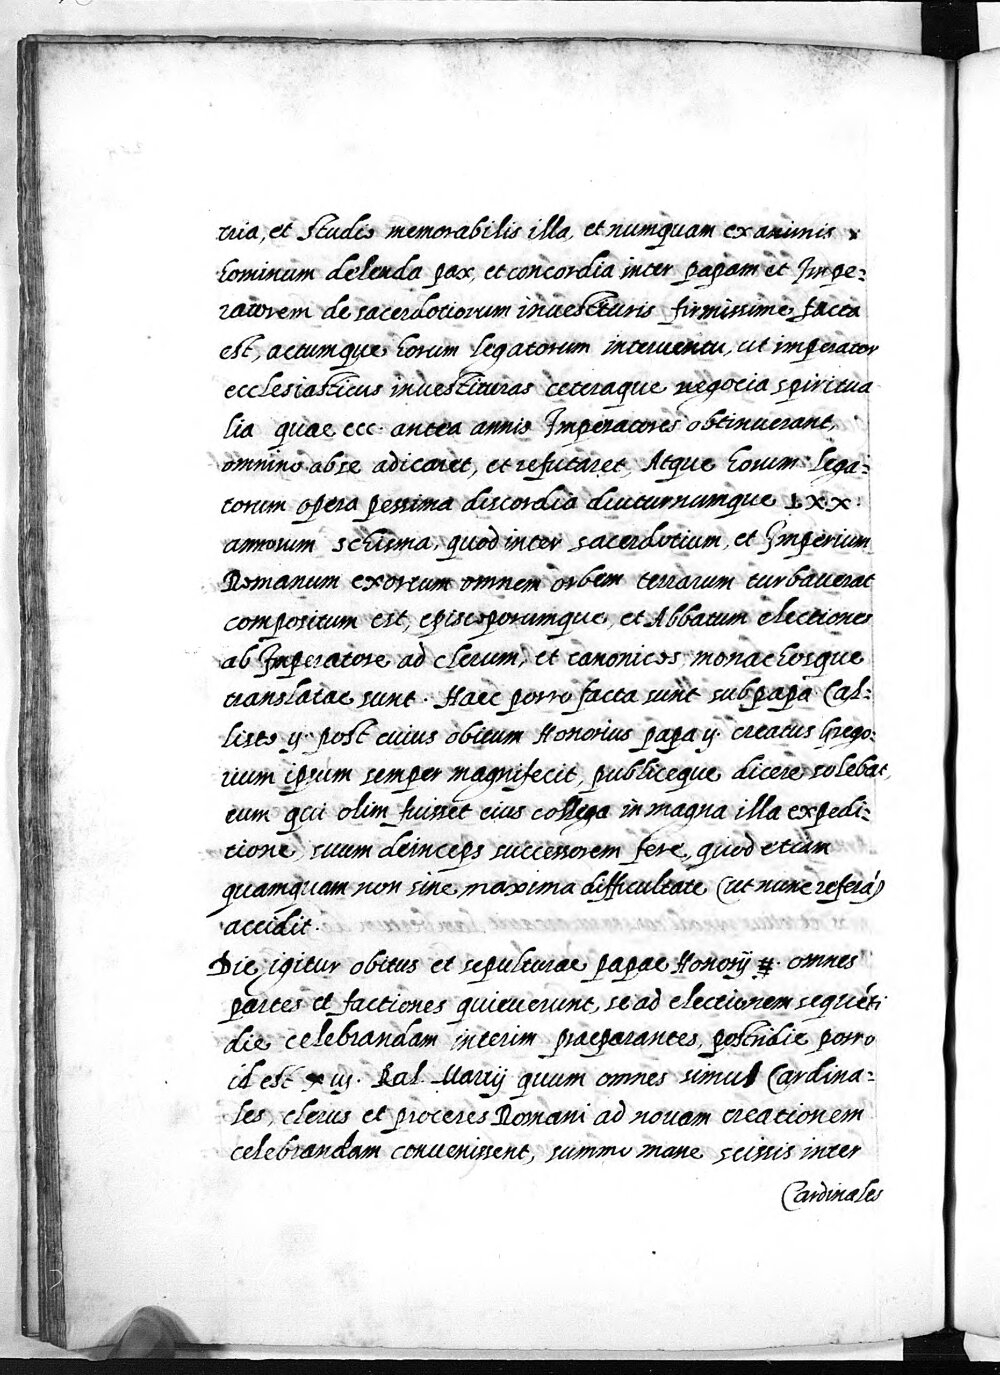 tria, et Studio memorabilis illa, et numquam ex animis
hominum delenda pax, et concordia inter papam et Impe-
ratorem de sacerdotiorum inuestituris firmissime facta
est, actumque horum legatorum interuentu, ut imperator
ecclesiasticus inuestituras ceteraque negocia spiritua
lia quae ccc. antea annis Imperatores obtinuerant,
omnino ab se adicaret, et refutaret, Atque horum lega-
torum opera pessima discordia diuturnumque LXX.
annorum schisma, quod inter sacerdotium, et Imperium
Romanum exortum omnem orbem terrarum turbauerat
compositum est, episcoporumque, et Abbatum electiones
ab Imperatore ad clerum, et canonicos monachosque
translatae sunt. Haec porro facta sunt sub papa Cal-
listo ij. post cuius obitum Honorius papa ij. creatus Grego-
rium ipsum semper magnifecit, publiceque dicere solebat,
eum qui olim fuisset eius collega in magna illa expedi-
tione, suum deinceps successorem fere, quod etiam
quamquam non sine maxima difficultate (ut nunc referã)
accidit.
Die igitur obitus et sepulturae papae Honorij II. omnes
partes et factiones quieuerunt, se ad electionem sequẽti
die celebrandam interim praeparantes, postridie porro
id est xiij. Kal. Martij quum omnes simul Cardina-
les, clerus et proceres Romani ad nouam creationem
celebrandam conuenissent, summo mane scissis inter
Cardinales